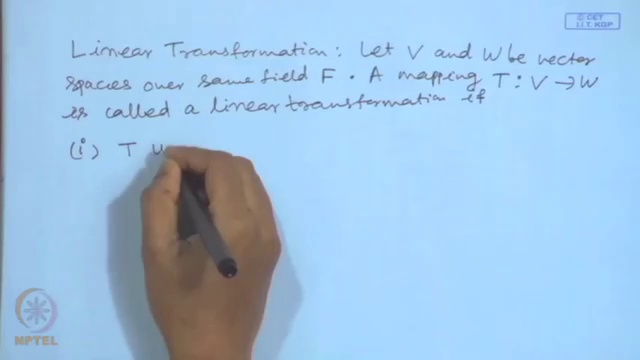 © CET
I.I.T. KGP
Linear Transformation: Let V and W be vector
spaces over same field F. A mapping T: V → W
is called a linear transformation if
(i) T u
NPTEL